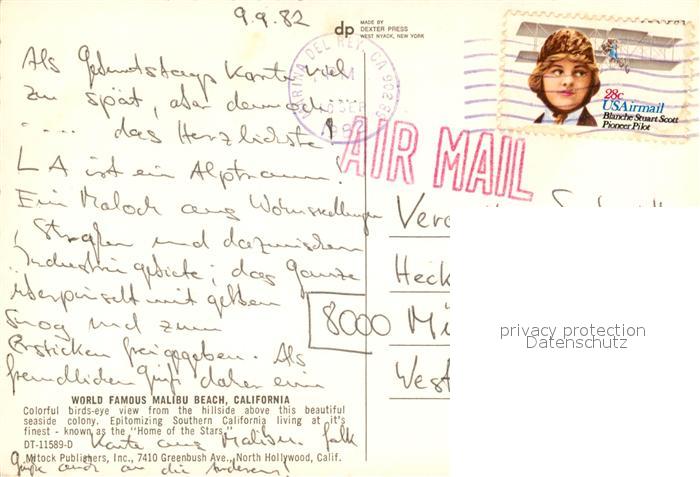 9.9.82
dp MADE BY
DEXTER PRESS
WEST NYACK, NEW YORK
Als Geburtstags Karte viel
zu spät, aber dennoch
..... das Herzlichste!
LA ist ein Alptraum!
Ein Moloch aus Wohnsiedlungen
, Straßen und dazwischen
Industriegebiete; das Ganze
überpinselt mit gelbem
Smog und zum
Ersticken freigegeben. Als
freundlichen Gruß daher eine
WORLD FAMOUS MALIBU BEACH, CALIFORNIA
Colorful birds-eye view from the hillside above this beautiful
seaside colony. Epitomizing Southern California living at it's
finest - known as the "Home of the Stars."
DT-11589-D
Karte aus Malibu. Falk
Mitock Publishers, Inc., 7410 Greenbush Ave., North Hollywood, Calif.
Grüße auch an die Anderen!
MARINA DEL REY, CA 90292
1982
AIR MAIL
28c
USAirmail
Blanche Stuart Scott
Pioneer Pilot
Heck
8000 Mü
West
privacy protection
Datenschutz